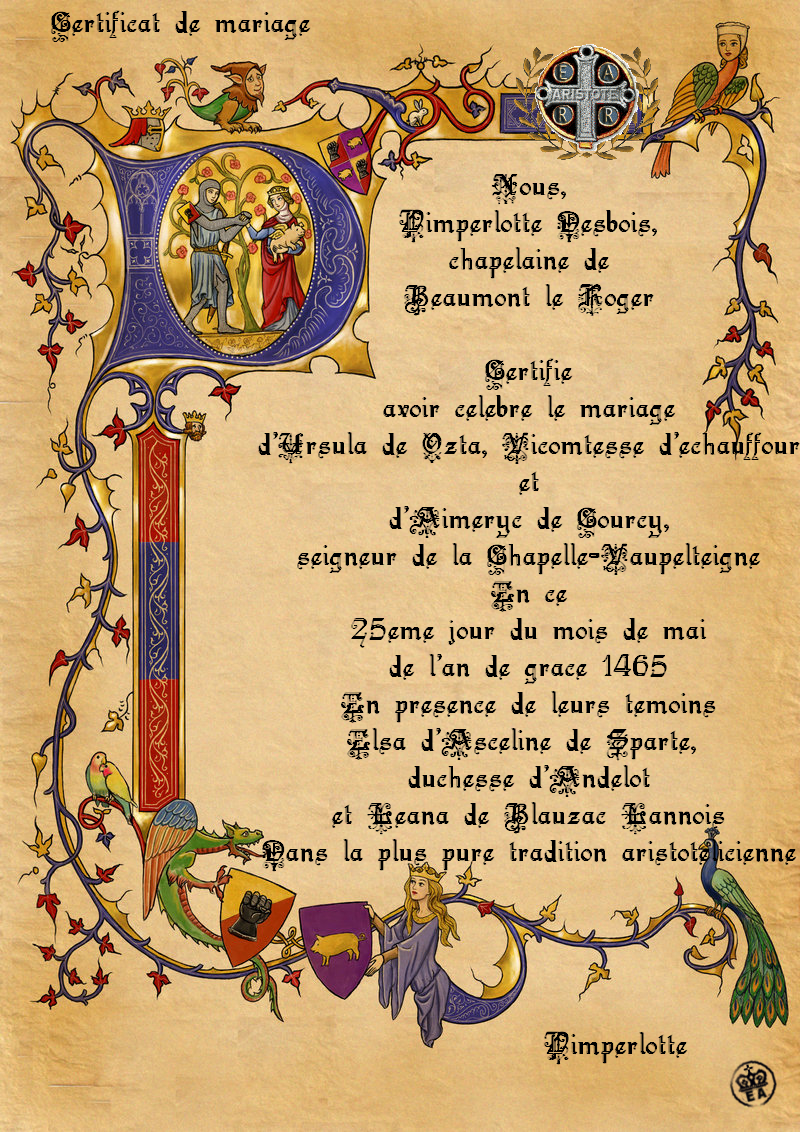 Certificat de mariage
E A
ARISTOTE
R R
Nous,
Pimperlotte Desbois,
chapelaine de
Beaumont le Roger
Certifie
avoir celebre le mariage
d'Ursula de Ozta, Vicomtesse d'echauffour
et
d'Aimeryc de Courcy,
seigneur de la Chapelle-Vaupelteigne
En ce
25eme jour du mois de mai
de l'an de grace 1465
En presence de leurs temoins
Elsa d'Asceline de Sparte,
duchesse d'Andelot
et Leana de Blauzac Lannois
Dans la plus pure tradition aristotelicienne
Pimperlotte
E A